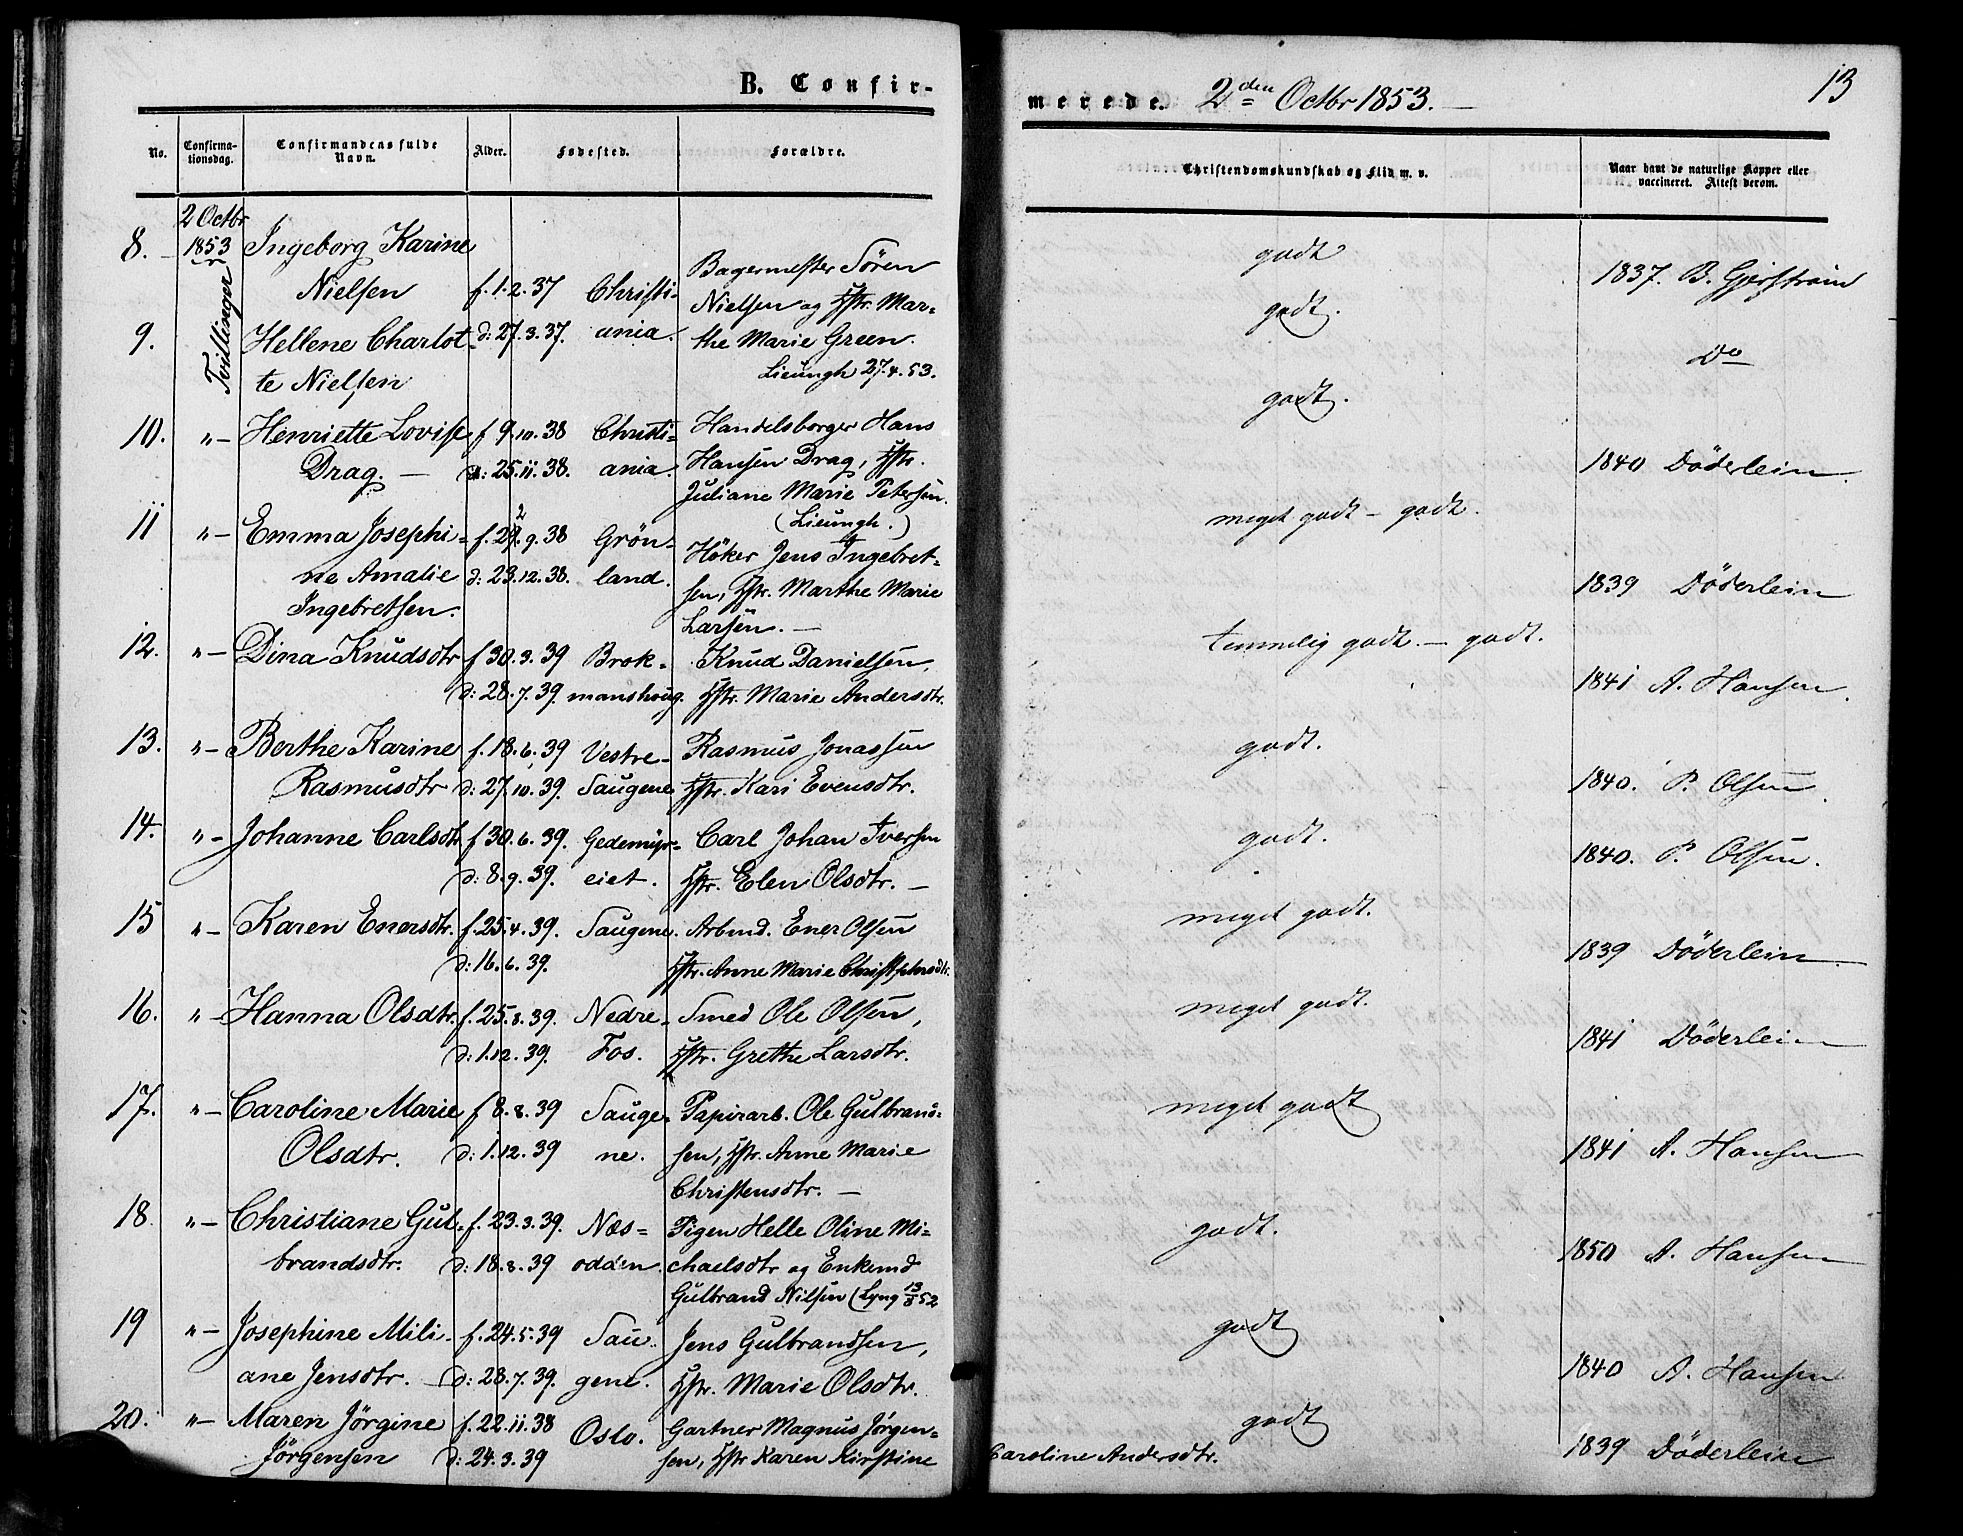 B. Confir-
merede. 2den Octbr 1853. —
13
No.
Confirma-
tionsdag.
Confirmandens fulde
Navn.
Alder.
Fødested.
Forældre.
Christendomskundskab og Flid m. v.
Naar havt de naturlige Kopper eller
vaccineret. Attest derom.
2 Octbr
1853
Tvillinger
8. Ingeborg Karine
Nielsen f. 1.2.37 Christi-
Bagermester Søren
Nielsen og Hstr. Mar-
godt
1837. B.
9. Hellene Charlot-
te Nielsen
d: 27.3.37. ania. the Marie Green.
Lieungh 27.4.53.
godt.
Do
10. "- Henriette Lovise f 9.10.38 Christi= Handelsborger Hans
Drag. — d: 25.11.38. ania. Hansen Drag, Hstr.
Juliane Marie Petersen.
(Lieungh.)
godt.
1840 Döderlein.
11 "- Emma Josephi- f. 2 .9.38 Grön- Höker Jens Ingebret-
ne Amalie d: 23.12.38. land. sen, Hstr. Marthe Marie
Ingebretsen. Larsen. —
meget godt - godt.
1839 Döderlein
12. "- Dina Knudsdtr f 30.3.39 Brok- Knud Danielsen,
d: 28.7.39. manshoug. Hstr. Marie Andersdtr.
temmelig godt. — godt.
1841 A. Hansen.
13. "- Berthe Karine f. 18.6.39 Vestre- Rasmus Jonassen
Rasmusdtr d: 27.10.39. Saugene Hstr. Kari Evensdtr.
godt.
1840. P. Olsen.
14. "- Johanne Carlsdtr f 30.6.39. Gedemyr- Carl Johan Iversen
d: 8.9.39. eiet. Hstr. Elen Olsdtr. —
godt.
1840. P. Olsen.
15 "- Karen Enersdtr. f. 25.4.39. Saugene. Arbmd. Ener Olsen
d: 16.6.39. Hstr. Anne Marie Christophersdtr.
meget godt.
1839 Döderlein
16. "- Hanna Olsdtr. f. 25.8.39. Nedre- Smed Ole Olsen,
d: 1.12.39. Fos. Hstr. Grethe Larsdtr.
meget godt.
1841 Döderlein
17. "- Caroline Marie f 8.8.39 Sauge- Papirarb. Ole Gulbrand-
Olsdtr. d: 1.12.39 ne. sen, Hstr. Anne Marie
Christensdtr. —
meget godt
1841 A. Hansen
18. "- Christiane Gul- f. 23.3.39. Næs= Pigen Helle Oline Mi-
brandsdtr. d: 18.8.39 odden. chaelsdtr og Enkemd
Gulbrand Nilsen (Lyng 13/8 52
godt.
1850 A. Hansen
19 "- Josephine Mili- f. 24.5.39 Sau- Jens Gulbrandsen,
ane Jensdtr. d: 28.7.39. gene. Hstr. Marie Olsdtr.
godt
1840 A. Hansen
20. "- Maren Jörgine f. 22.11.38 Oslo. Gartner Magnus Jørgen-
Jörgensen d: 24.3.39 sen, Hstr Karen Kirstine
Caroline Andersdtr.
godt
1839 Döderlein